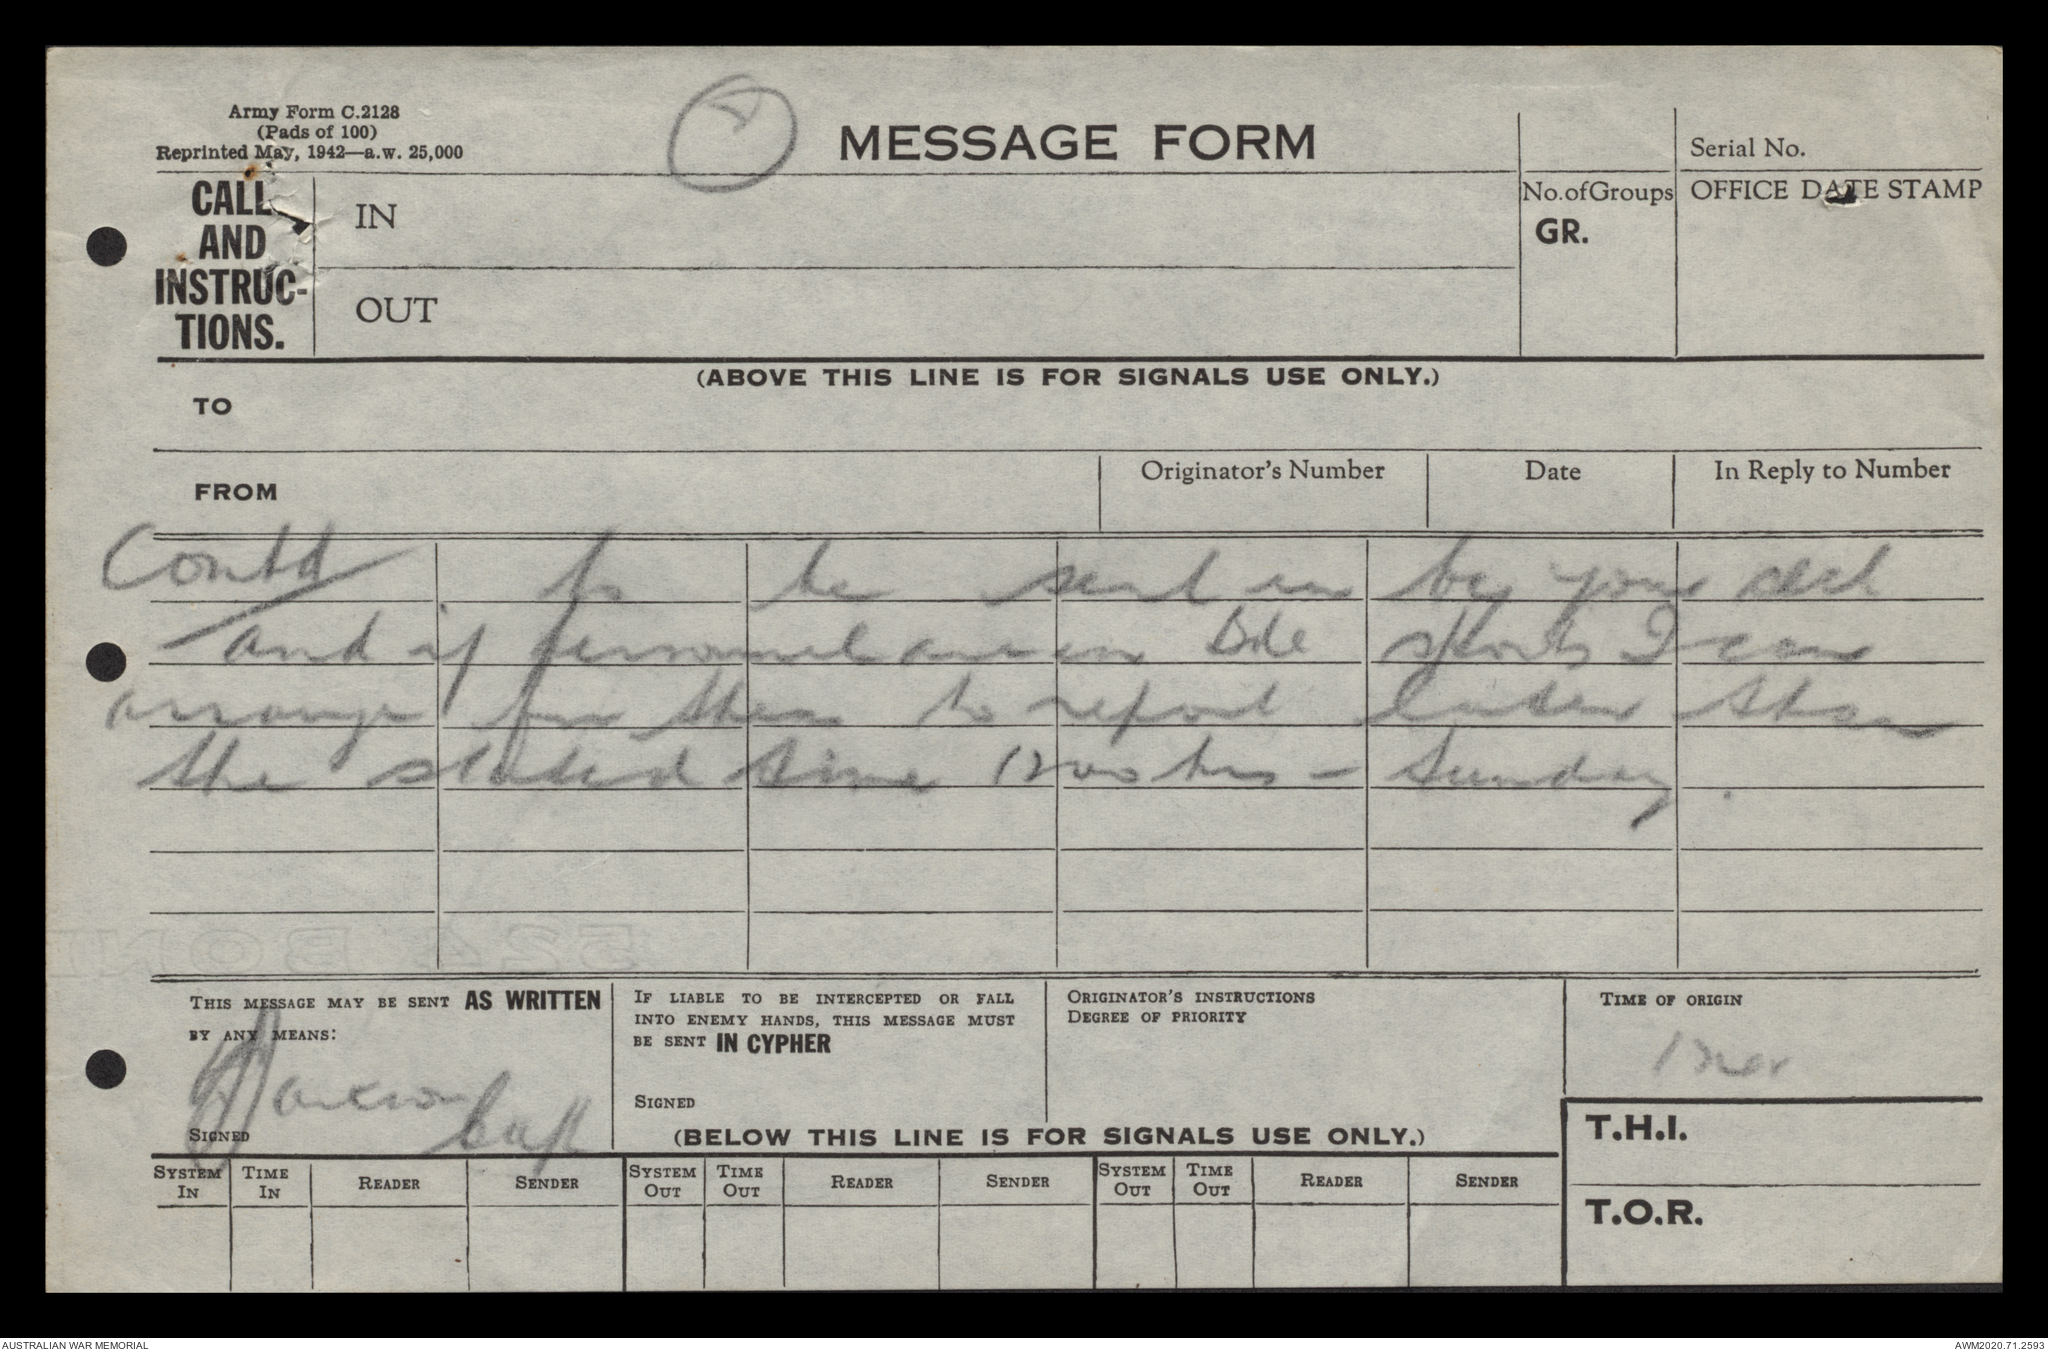 Army Form C.2128
(Pads of 100)
Reprinted May, 1942—a.w. 25,000
MESSAGE FORM
Serial No.
CALL
AND
INSTRUC-
TIONS.
IN
OUT
No. of Groups
GR.
OFFICE DATE STAMP
(ABOVE THIS LINE IS FOR SIGNALS USE ONLY.)
TO
FROM
Originator's Number
Date
In Reply to Number
Contd to be sent in by your
and if personnel are in Bde sports I can
arrange for them to report later than
the stated time 1200 hrs - Sunday.
THIS MESSAGE MAY BE SENT AS WRITTEN
BY ANY MEANS:
Capt
SIGNED
IF LIABLE TO BE INTERCEPTED OR FALL
INTO ENEMY HANDS, THIS MESSAGE MUST
BE SENT IN CYPHER
SIGNED
ORIGINATOR'S INSTRUCTIONS
DEGREE OF PRIORITY
TIME OF ORIGIN
(BELOW THIS LINE IS FOR SIGNALS USE ONLY.)
T.H.I.
T.O.R.
SYSTEM IN
TIME IN
READER
SENDER
SYSTEM OUT
TIME OUT
READER
SENDER
SYSTEM OUT
TIME OUT
READER
SENDER
AUSTRALIAN WAR MEMORIAL
AWM2020.71.2593